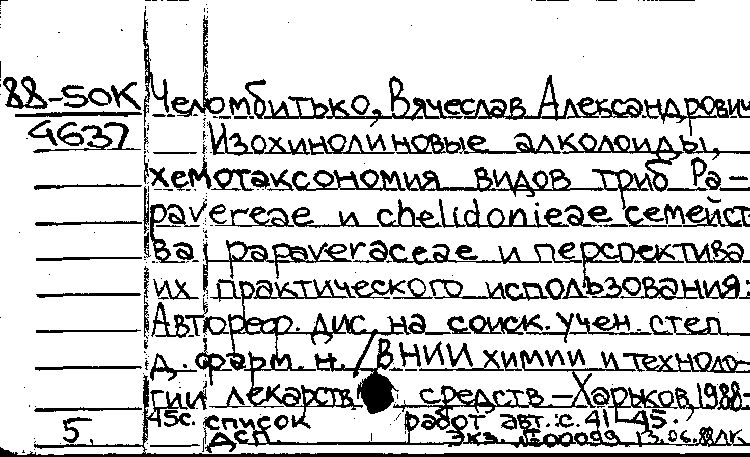 88-50K Челомбитько, Вячеслав Александрович
4637 Изохинолиновые алколоиды,
хемотаксономия видов триб Pa-
pavereae и chelidonieae семейст
ва papaveraceae и перспектива
их практического использования:
Автореф. дис. на соиск. учен. степ
д. фарм. н. / ВНИИ химии и техноло-
гии лекарств , средств - Харьков, 1988-
45с. список работ авт.: с. 41-45.
5. ДСП. Экз. №00099 13.06.88 ЛК